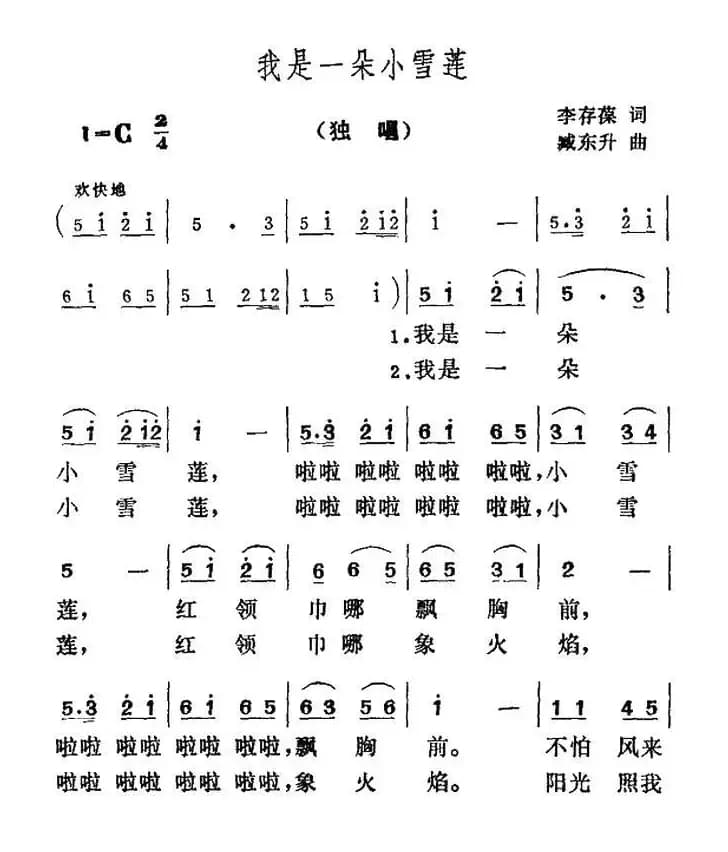 我是一朵小雪莲
1=C 2/4
（独唱）
李存葆 词
臧东升 曲
欢快地
(5 i 2 i | 5 . 3 | 5 i 2 i2 | i — | 5.3 2 i |
6 i 6 5 | 5 1 2 12 | 1 5 i ) | 5 i 2 i | 5 . 3 |
1.我是 一 朵
2.我是 一 朵
5 i 2 i2 | i — | 5.3 2 i | 6 i 6 5 | 3 1 3 4 |
小 雪 莲， 啦啦 啦啦 啦啦 啦啦，小 雪
小 雪 莲， 啦啦 啦啦 啦啦 啦啦，小 雪
5 — | 5 i 2 i | 6 6 5 | 6 5 3 1 | 2 — |
莲， 红 领 巾 哪 飘 胸 前，
莲， 红 领 巾 哪 象 火 焰，
5.3 2 i | 6 i 6 5 | 6 3 5 6 | i — | 1 1 4 5 |
啦啦 啦啦 啦啦 啦啦，飘 胸 前。 不怕 风来
啦啦 啦啦 啦啦 啦啦，象 火 焰。 阳光 照我